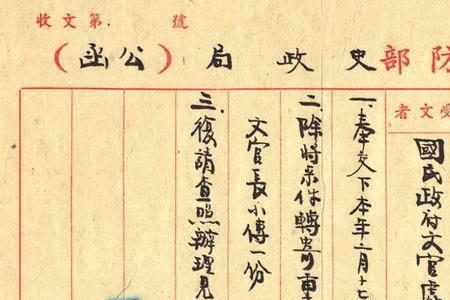 收文第號
防部史政局（公函）
受文者
國民政府文官處
一、奉交下本年二月十七
二、除將來件轉寄重
文官長小傳一份
三、復請查照辦理見